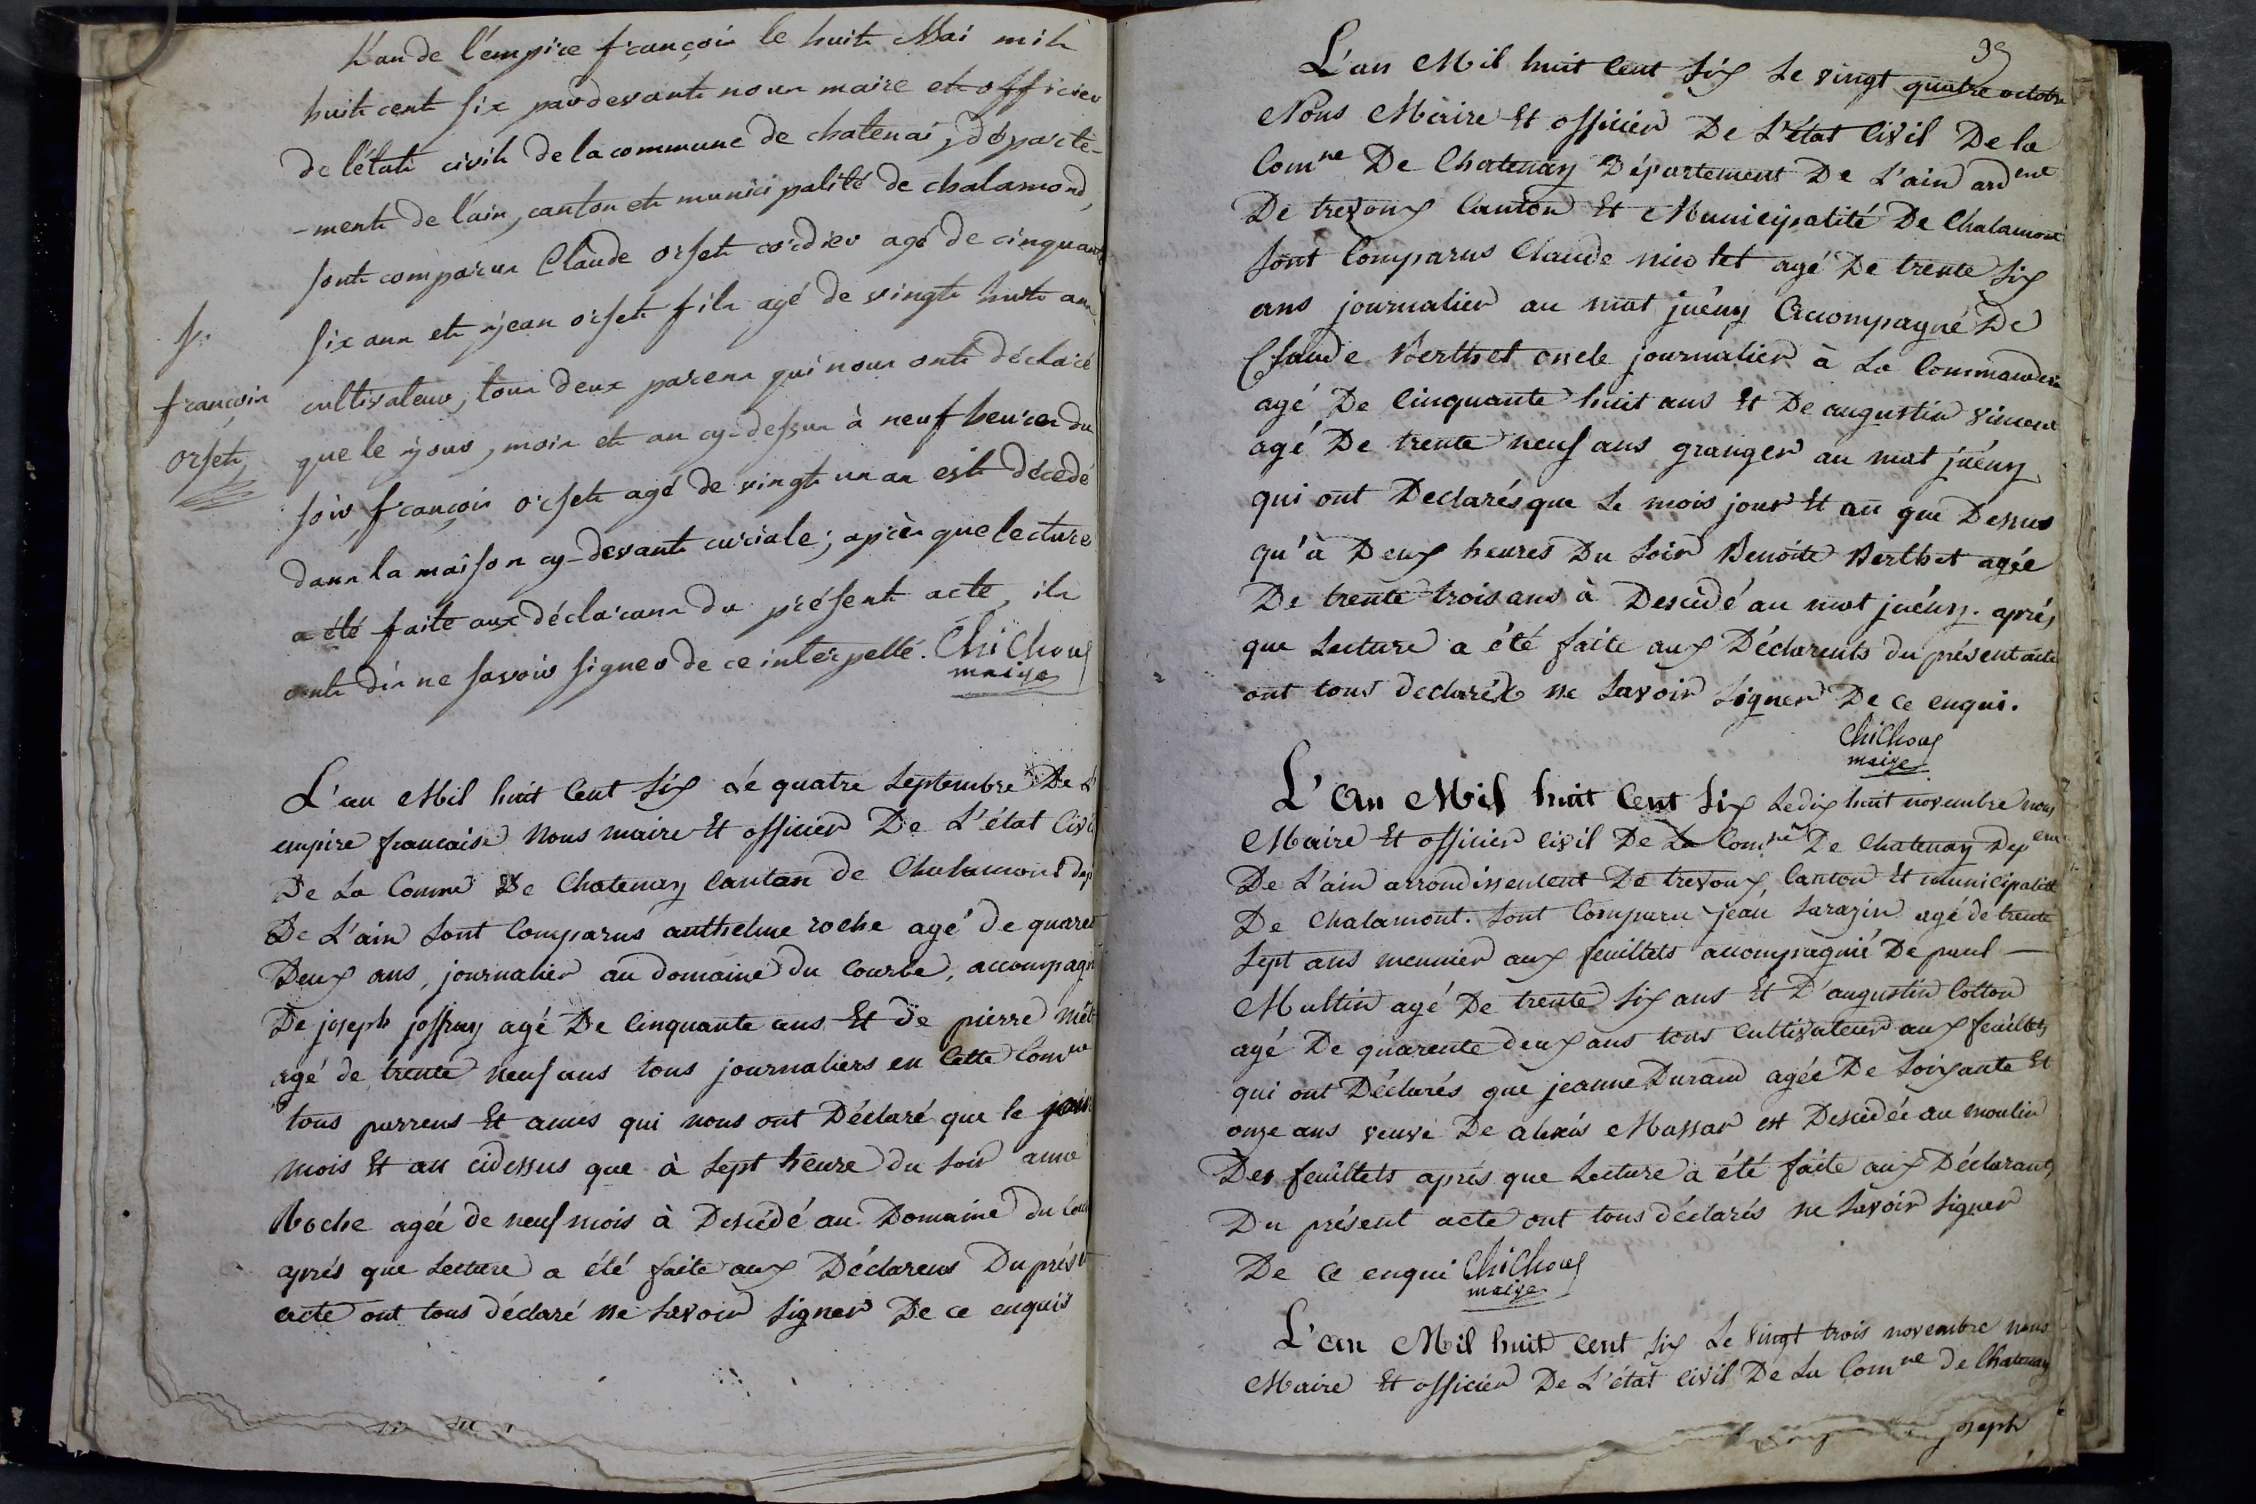 L'an de l'empire françois le huit Mai mil
huit cent six pardevant nous maire et officier
de l'état civil de la commune de chatenai, départe-
-ment de l'ain, canton et municipalité de chalamond,
sont comparus Claude orset cordier agé de cinquante
six ans et jean orset fils agé de vingt huit ans
cultivateur, tous deux parens qui nous ont déclaré
que le jour, mois et an cy-dessus à neuf heures du
soir françois orset agé de vingt un an est décédé
dans la maison cy-devant curiale; après que lecture
a été faite aux déclarans du présent acte, ils
ont dis ne savoir signer de ce interpellé. Chichoux
maire
françois
orset
L'an Mil huit Cent Six Le quatre Septembre De L'
empire francaise Nous maire Et officier De L'état Civil
De La Comne De Chatenay Canton de Chalamont dep
De L'ain Sont Comparus anthelme roche agé de quarente
Deux ans, journalier au domaine du Courbe, accompagné
De joseph joffray agé De Cinquante ans Et de pierre
agé de trente neuf ans tous journaliers en Cette Comne
tous parrens Et amis qui nous ont Déclaré que le jour
mois Et an cidessus que à Sept heure du Soir anne
Roche agée de neuf mois à Decédé au Domaine du
aprés que Lecture a été faite aux Déclarens Du présent
acte ont tous déclaré Ne Savoir Signer De ce enquis
L'an Mil huit Cent Six Le vingt quatre octobre
Nous Maire Et officier De L'état Civil De la
Comne De Chatenay Département De L'ain ardment
De trevoux Canton Et Municipalité De Chalamont
Sont Comparus Claude nicolet agé De trente Six
ans journalier au mat juény Accompagné De
Claude Berthet oncle journalier à La Commanderie
agé De Cinquante huit ans Et De augustin vincent
agé De trente neuf ans granger au mat juény
qui ont Declarés que Le mois jour Et an que Dessus
qu'à Deux heures Du Soir Benoite Berthet agée
De trente trois ans à Decédé au mat juény. aprés
que Lecture a été faite aux Déclarents du présent acte
ont tous declaré Ne Savoir Signer De Ce enqui.
Chichoux
maire
L'An Mil huit Cent Six Le dix huit novembre nous
Maire Et officier Civil De La Comne De Chatenay Depem
De L'ain arrondissement De trevoux, Canton Et municipalité
De Chalamont. Sont Comparu jean Sarazin agé de trente
Sept ans meunier aux feuillets accompagnié De paul —
Multin agé De trente Six ans Et D'augustin Cotton
agé De quarente deux ans tous Cultivateur aux feuillets
qui ont Déclarés que jeanne Durand agée De Soixante Et
onze ans veuve De alexis Massar est Decédée au moulin
Des feuillets aprés que Lecture a été faite aux Déclarants
Du présent acte ont tous déclarés ne Savoir Signer
De Ce enqui Chichoux
maire
L'an Mil huit cent Six Le vingt trois novembre nous
Maire Et officier De L'état Civil De La Comne de Chatenay
joseph